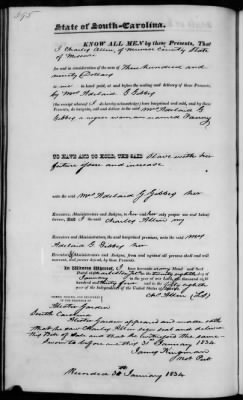 State of South-Carolina.
KNOW ALL MEN by these Presents, That
I Charles Allen, of Monroe County State
of Missouri
for and in consideration of the sum of Three hundred and
ninety Dollars
to me in hand paid, at and before the sealing and delivery of these Presents,
by Mrs Adelaid G. Gibbes
(the receipt whereof I do hereby acknowledge) have bargained and sold, and by these
Presents, do bargain, sell and deliver to the said Mrs Adelaid G
Gibbes a negro woman named Fanny
TO HAVE AND TO HOLD, THE SAID Slave with her
future issue and increase
unto the said Mrs Adelaid G Gibbes her
Executors, Administrators and Assigns, to her and her only proper use and behoof,
forever. And I the said Charles Allen my
Executors and Administrators, the said bargained premises, unto the said Mrs
Adelaid G. Gibbes her
Executors, Administrators and Assigns, from and against all persons shall and will
warrant, and forever defend, by these Presents.
In Witness Whereof, I have hereunto set my Hand and Seal
Dated at Charleston on the twenty eighth day of
January in the year of our Lord one thousand eight
hundred thirty four and in the fifty eighth
year of the Independence of the United States of America.
Chs. Allen (LS)
SIGNED, SEALED, AND DELIVERED
IN THE PRESENCE OF
South Carolina
appeared and made oath
that he saw Charles Allen sign seal and deliver
this Bill of Sale and that he witnessed the same.
Sworn to before me this 30 January 1834
Not Pub
Recorded 30 January 1834